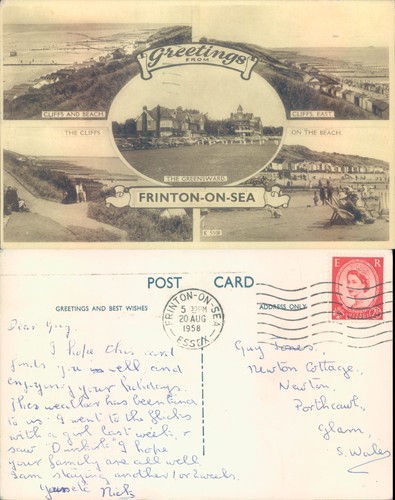 Greetings
FROM
CLIFFS AND BEACH.
CLIFFS, EAST.
THE CLIFFS
ON THE BEACH.
THE GREENSWARD
FRINTON-ON-SEA
POST CARD
GREETINGS AND BEST WISHES
ADDRESS ONLY
FRINTON-ON-SEA
5 PM
20 AUG
1958
ESSEX
E R
Dear Guy
I hope this card
finds you well and
enjoying your holidays.
This weather has been kind
to us. I went to the flicks
with a girl last week &
saw Dunkirk. I hope
your family are all well
I am staying another 1 or 2 weeks.
Yours Nick
Guy Jones,
Newton Cottage,
Newton,
Porthcawl,
Glam,
S. Wales